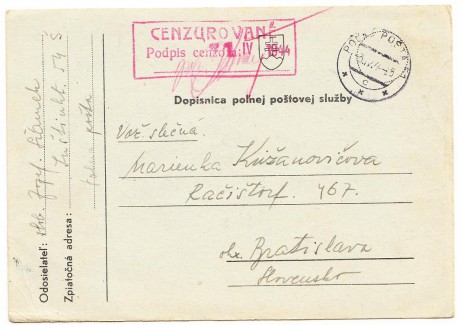 CENZUROVANÉ
Podpis cenzora:
IV 1944
POĽNÁ POŠTA
c
Dopisnica poľnej poštovej služby
Vož. slečná.
Marienka Križanovičova
Račištorf. 467.
okr. Bratislava
Slovensko
Odosielateľ: Jozef
54 S
Zpiatočná adresa:
poľná pošta